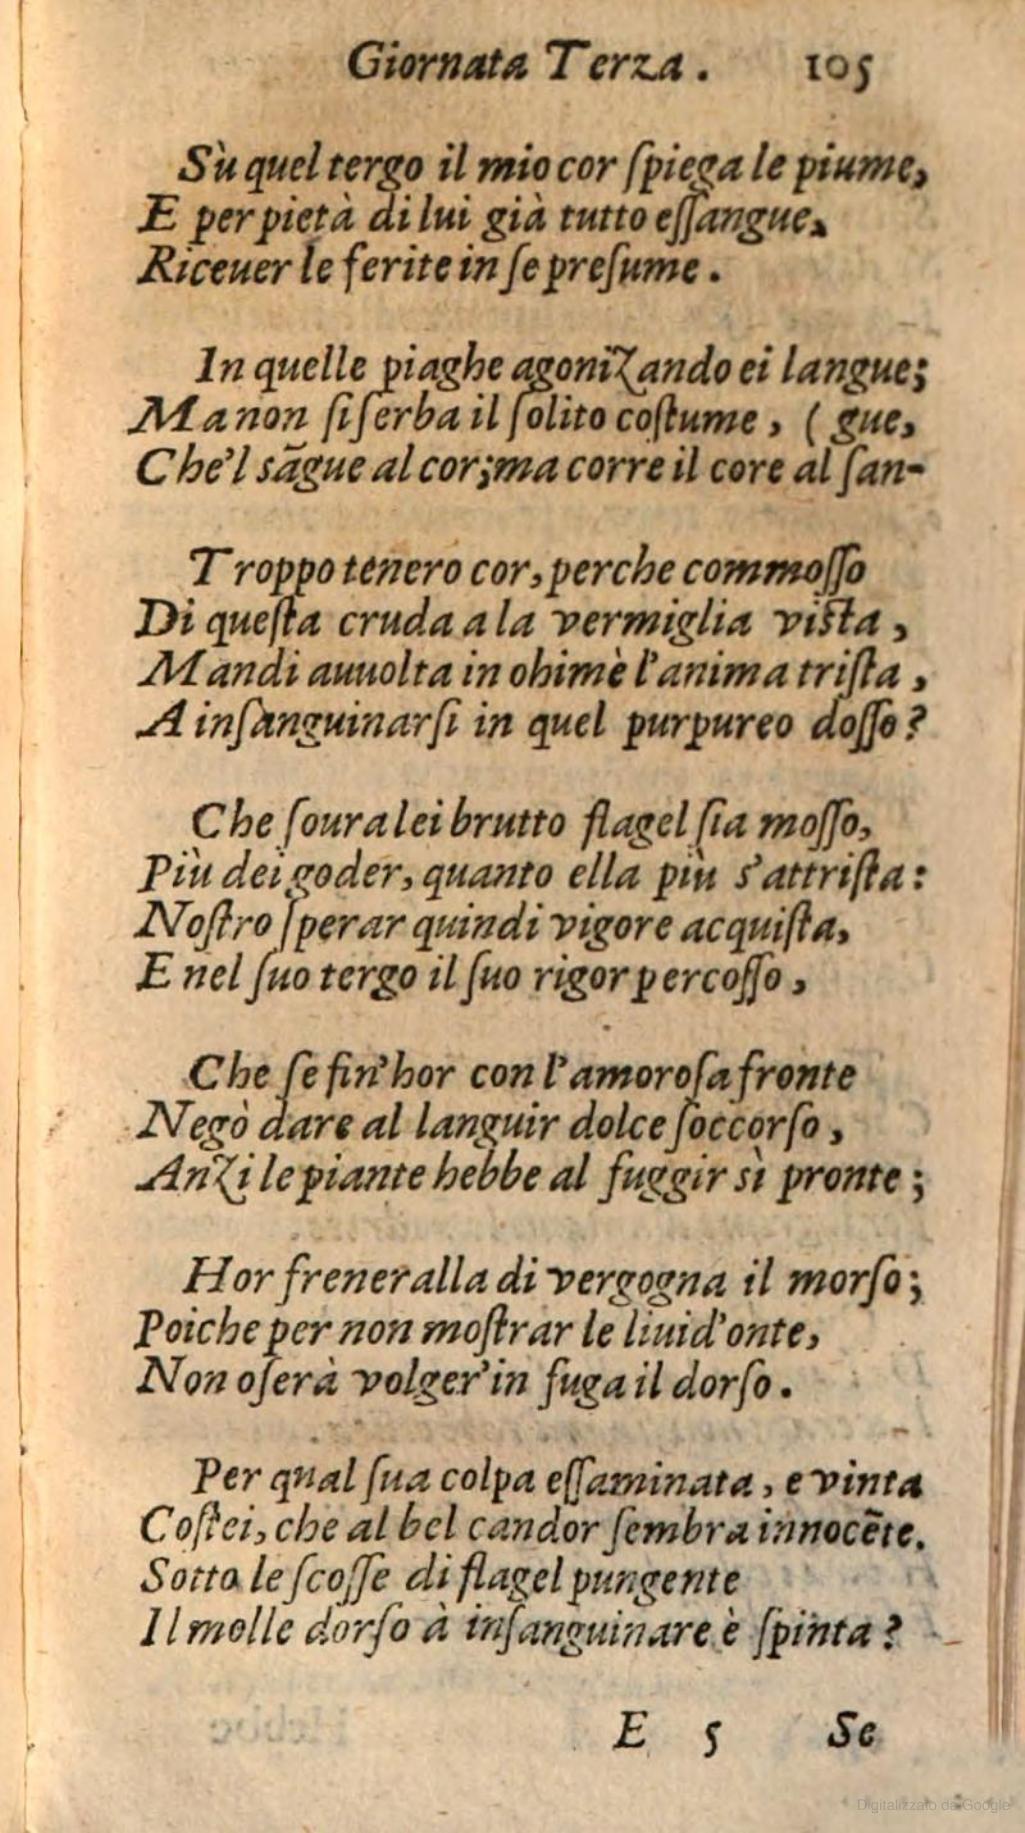 Giornata Terza. 105
Sù quel tergo il mio cor ſpiega le piume,
E per pietà di lui già tutto eſſangue,
Riceuer le ferite in ſe preſume.
In quelle piaghe agonizando ei langue;
Ma non ſi ſerba il ſolito coſtume, ( gue,
Che'l sãgue al cor;ma corre il core al ſan-
Troppo tenero cor, perche commoſſo
Di queſta cruda a la vermiglia viſta,
Mandi auuolta in ohimè l'anima triſta,
A inſanguinarſi in quel purpureo doſſo?
Che ſoura lei brutto flagel ſia moſſo,
Più dei goder, quanto ella più s'attriſta:
Noſtro ſperar quindi vigore acquiſta,
E nel ſuo tergo il ſuo rigor percoſſo,
Che ſe fin'hor con l'amoroſa fronte
Negò dare al languir dolce ſoccorſo,
Anzi le piante hebbe al fuggir sì pronte;
Hor freneralla di vergogna il morſo;
Poiche per non moſtrar le liuid'onte,
Non oſerà volger'in fuga il dorſo.
Per qual ſua colpa eſſaminata, e vinta
Coſtei, che al bel candor ſembra innocẽte.
Sotto le ſcoſſe di flagel pungente
Il molle dorſo à inſanguinare è ſpinta?
E 5 Se
Digitalizzato da Google